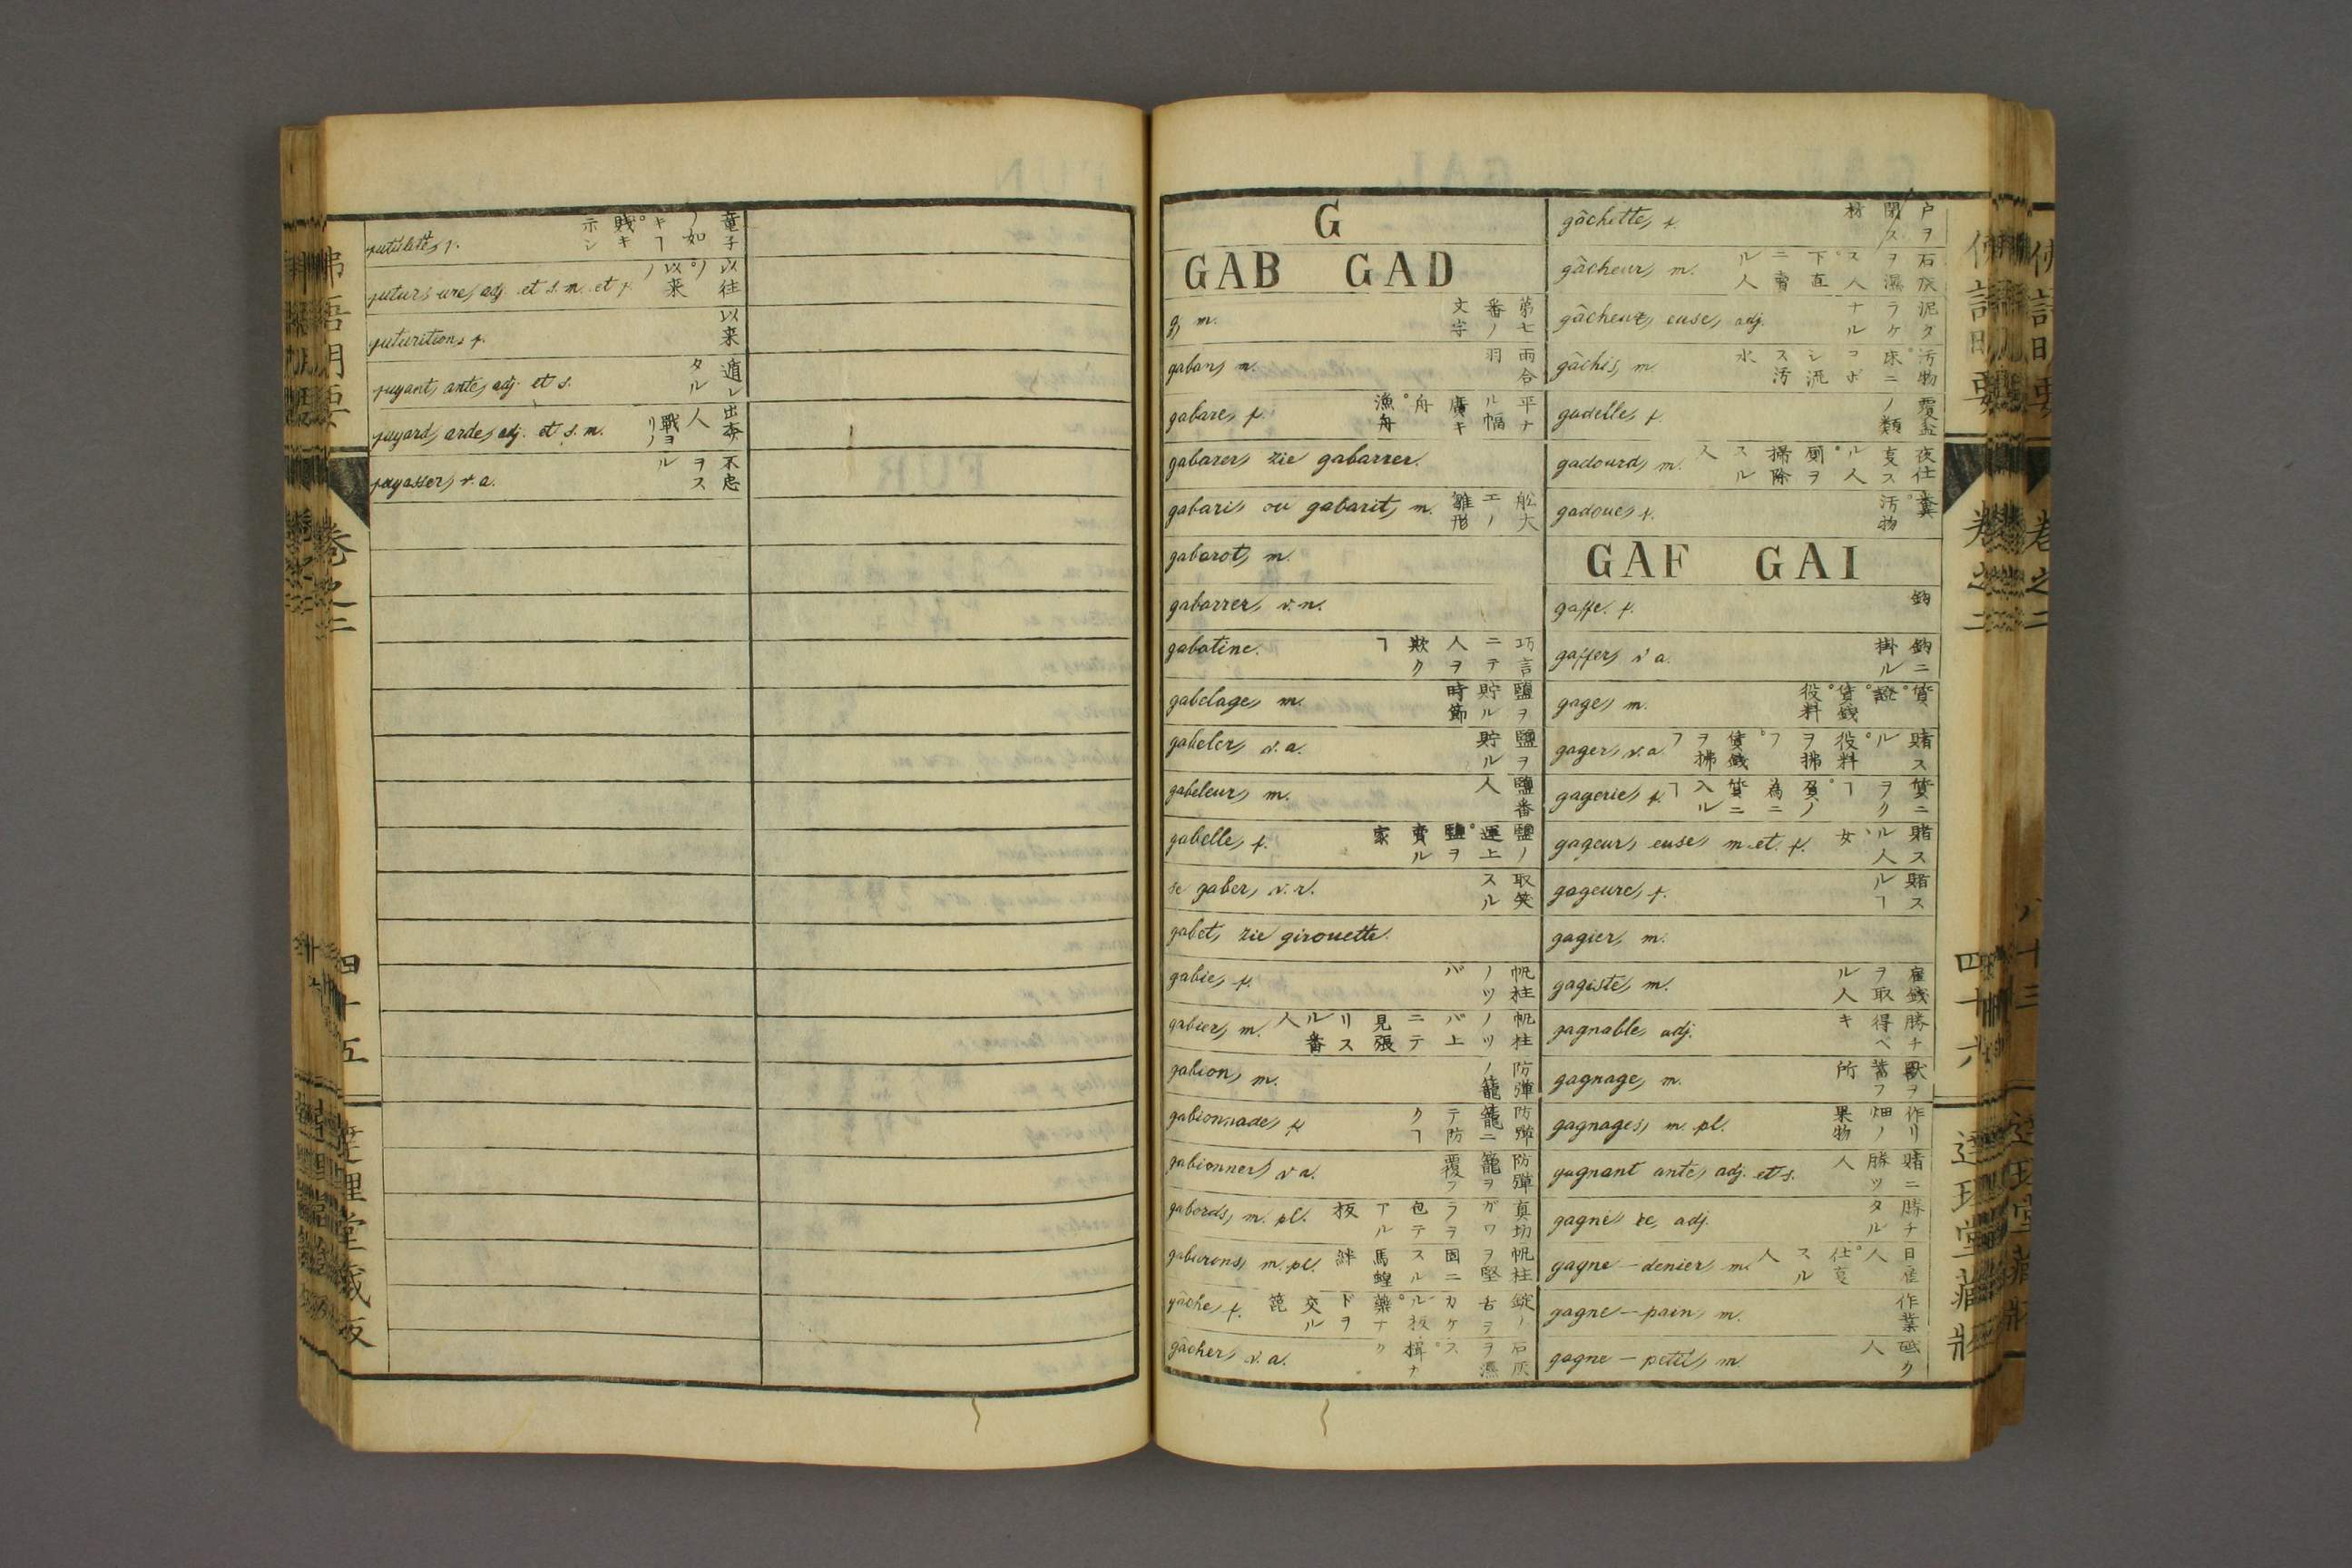 futilité, f. 童子ノ如キヿ。賤キヿ
futur, ure, adj. et s. m. et f. 以往ノ。以来ノ
futurition, f. 以来
fuyant, ante, adj. et s. 遁レタル
fuyard, arde, adj. et s. m.
fuyasser, v. a.
G
GAB GAD
g, m. 第七番ノ文字
gaban, m. 雨合羽
gabare, f. 平ナル幅廣キ舟。漁舟
gabarer, zie gabarrer.
gabari, ou gabarit, m. 舩大工ノ雛形
gabarot, m.
gabarrer, v. n.
gabatine. 巧言ニテ人ヲ欺クヿ
gabelage, m. 鹽ヲ貯ル時節
gabeler, v. a. 鹽ヲ貯ル
gabeleur, m. 鹽番人
gabelle, f. 鹽ノ運上。鹽ヲ賣ル家
se gaber, v. r. 取笑スル
gabet, zie girouette.
gabie, f. 帆柱ノツバ
gabier, m. 帆柱ノツバ上ニテ見張リスル番人
gabion, m. 防弾ノ籠
gabionnade, f. 防弾籠ニテ防クヿ
gabionner, v. a. 防弾籠ヲ覆フ
gabords, m. pl.
gaburons, m. pl. 帆柱ヲ堅固ニスル馬蝗絆
gâche, f.
gâcher, v. a.
gâchette, f.
gâcheur, m.
gâcheux, euse, adj. 泥タラケナル
gâchis, m.
gadelle, f. 覆盆ノ類
gadourd, m. 夜仕事スル人。厠ヲ掃除スル人
gadoue, f. 糞。汚物
GAF GAI
gaffe, f. 鈎
gaffer, v. a. 鈎ニ掛ル
gage, m. 質。證。賃錢。役料
gager, v. a. 賭スル。役料ヲ拂フ。賃錢ヲ拂フ
gagerie, f.
gageur, euse, m. et. f. 賭スル人、女
gageure, f. 賭スルヿ
gagier, m.
gagiste, m. 雇錢ヲ取ル人
gagnable, adj. 勝チ得ベキ
gagnage, m. 獸ヲ蓄フ所
gagnages, m. pl. 作リ畑ノ果物
gagnant ante, adj. et s. 賭ニ勝ツ人
gagné ée, adj. 勝チタル
gagne-denier, m. 日雇人。仕事スル人
gagne-pain, m. 作業
gagne-petit, m. 砥ク人
佛語明要
卷之二
四十五
達理堂藏版
佛語明要
卷之二
四十六
達理堂藏版